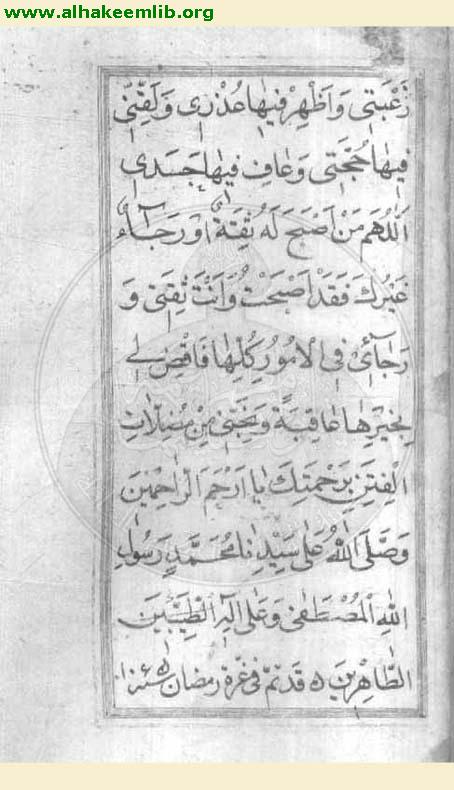 www.alhakeemlib.org
رَغْبَتِي وَاَظْهِرْ فِيهَا عُذْرِي وَلَقِّنِّي
فِيهَا حُجَّتِي وَعَافِ فِيهَا جَسَدِي
اَللّٰهُمَّ مَنْ اَصْبَحَ لَهُ ثِقَةٌ اَوْ رَجَاءٌ
غَيْرُكَ فَقَدْ اَصْبَحْتُ وَاَنْتَ ثِقَتِي وَ
رَجَائِي فِي الْاُمُورِ كُلِّهَا فَاقْضِ لِي
بِخَيْرِهَا عَاقِبَةً وَنَجِّنِي مِنْ مُضِلَّاتِ
الْفِتَنِ بِرَحْمَتِكَ يَا اَرْحَمَ الرَّاحِمِينَ
وَصَلَّى اللهُ عَلَى سَيِّدِنَا مُحَمَّدٍ رَسُولِ
اللهِ الْمُصْطَفَى وَعَلَى آلِهِ الطَّيِّبِينَ
الطَّاهِرِينَ قد تم فى غرة رمضان